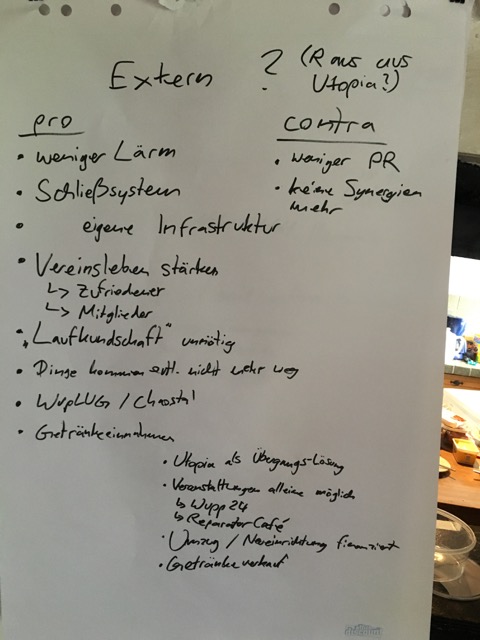 Extern ? (Raus aus
Utopia?)
pro
• weniger Lärm
• Schließsystem
• eigene Infrastruktur
• Vereinsleben stärken
↳ Zufriedener
↳ Mitglieder
• „Laufkundschaft" unnötig
• Dinge kommen evtl. nicht mehr weg
• WupLUG / Chaostal
• Getränkeeinnahmen
contra
• weniger PR
• keine Synergien
mehr
• Utopia als Übergangs-Lösung
• Veranstaltungen alleine möglich
↳ Wupp24
↳ Reparatur Café
• Umzug / Neueinrichtung finanziert
• Getränkeverkauf